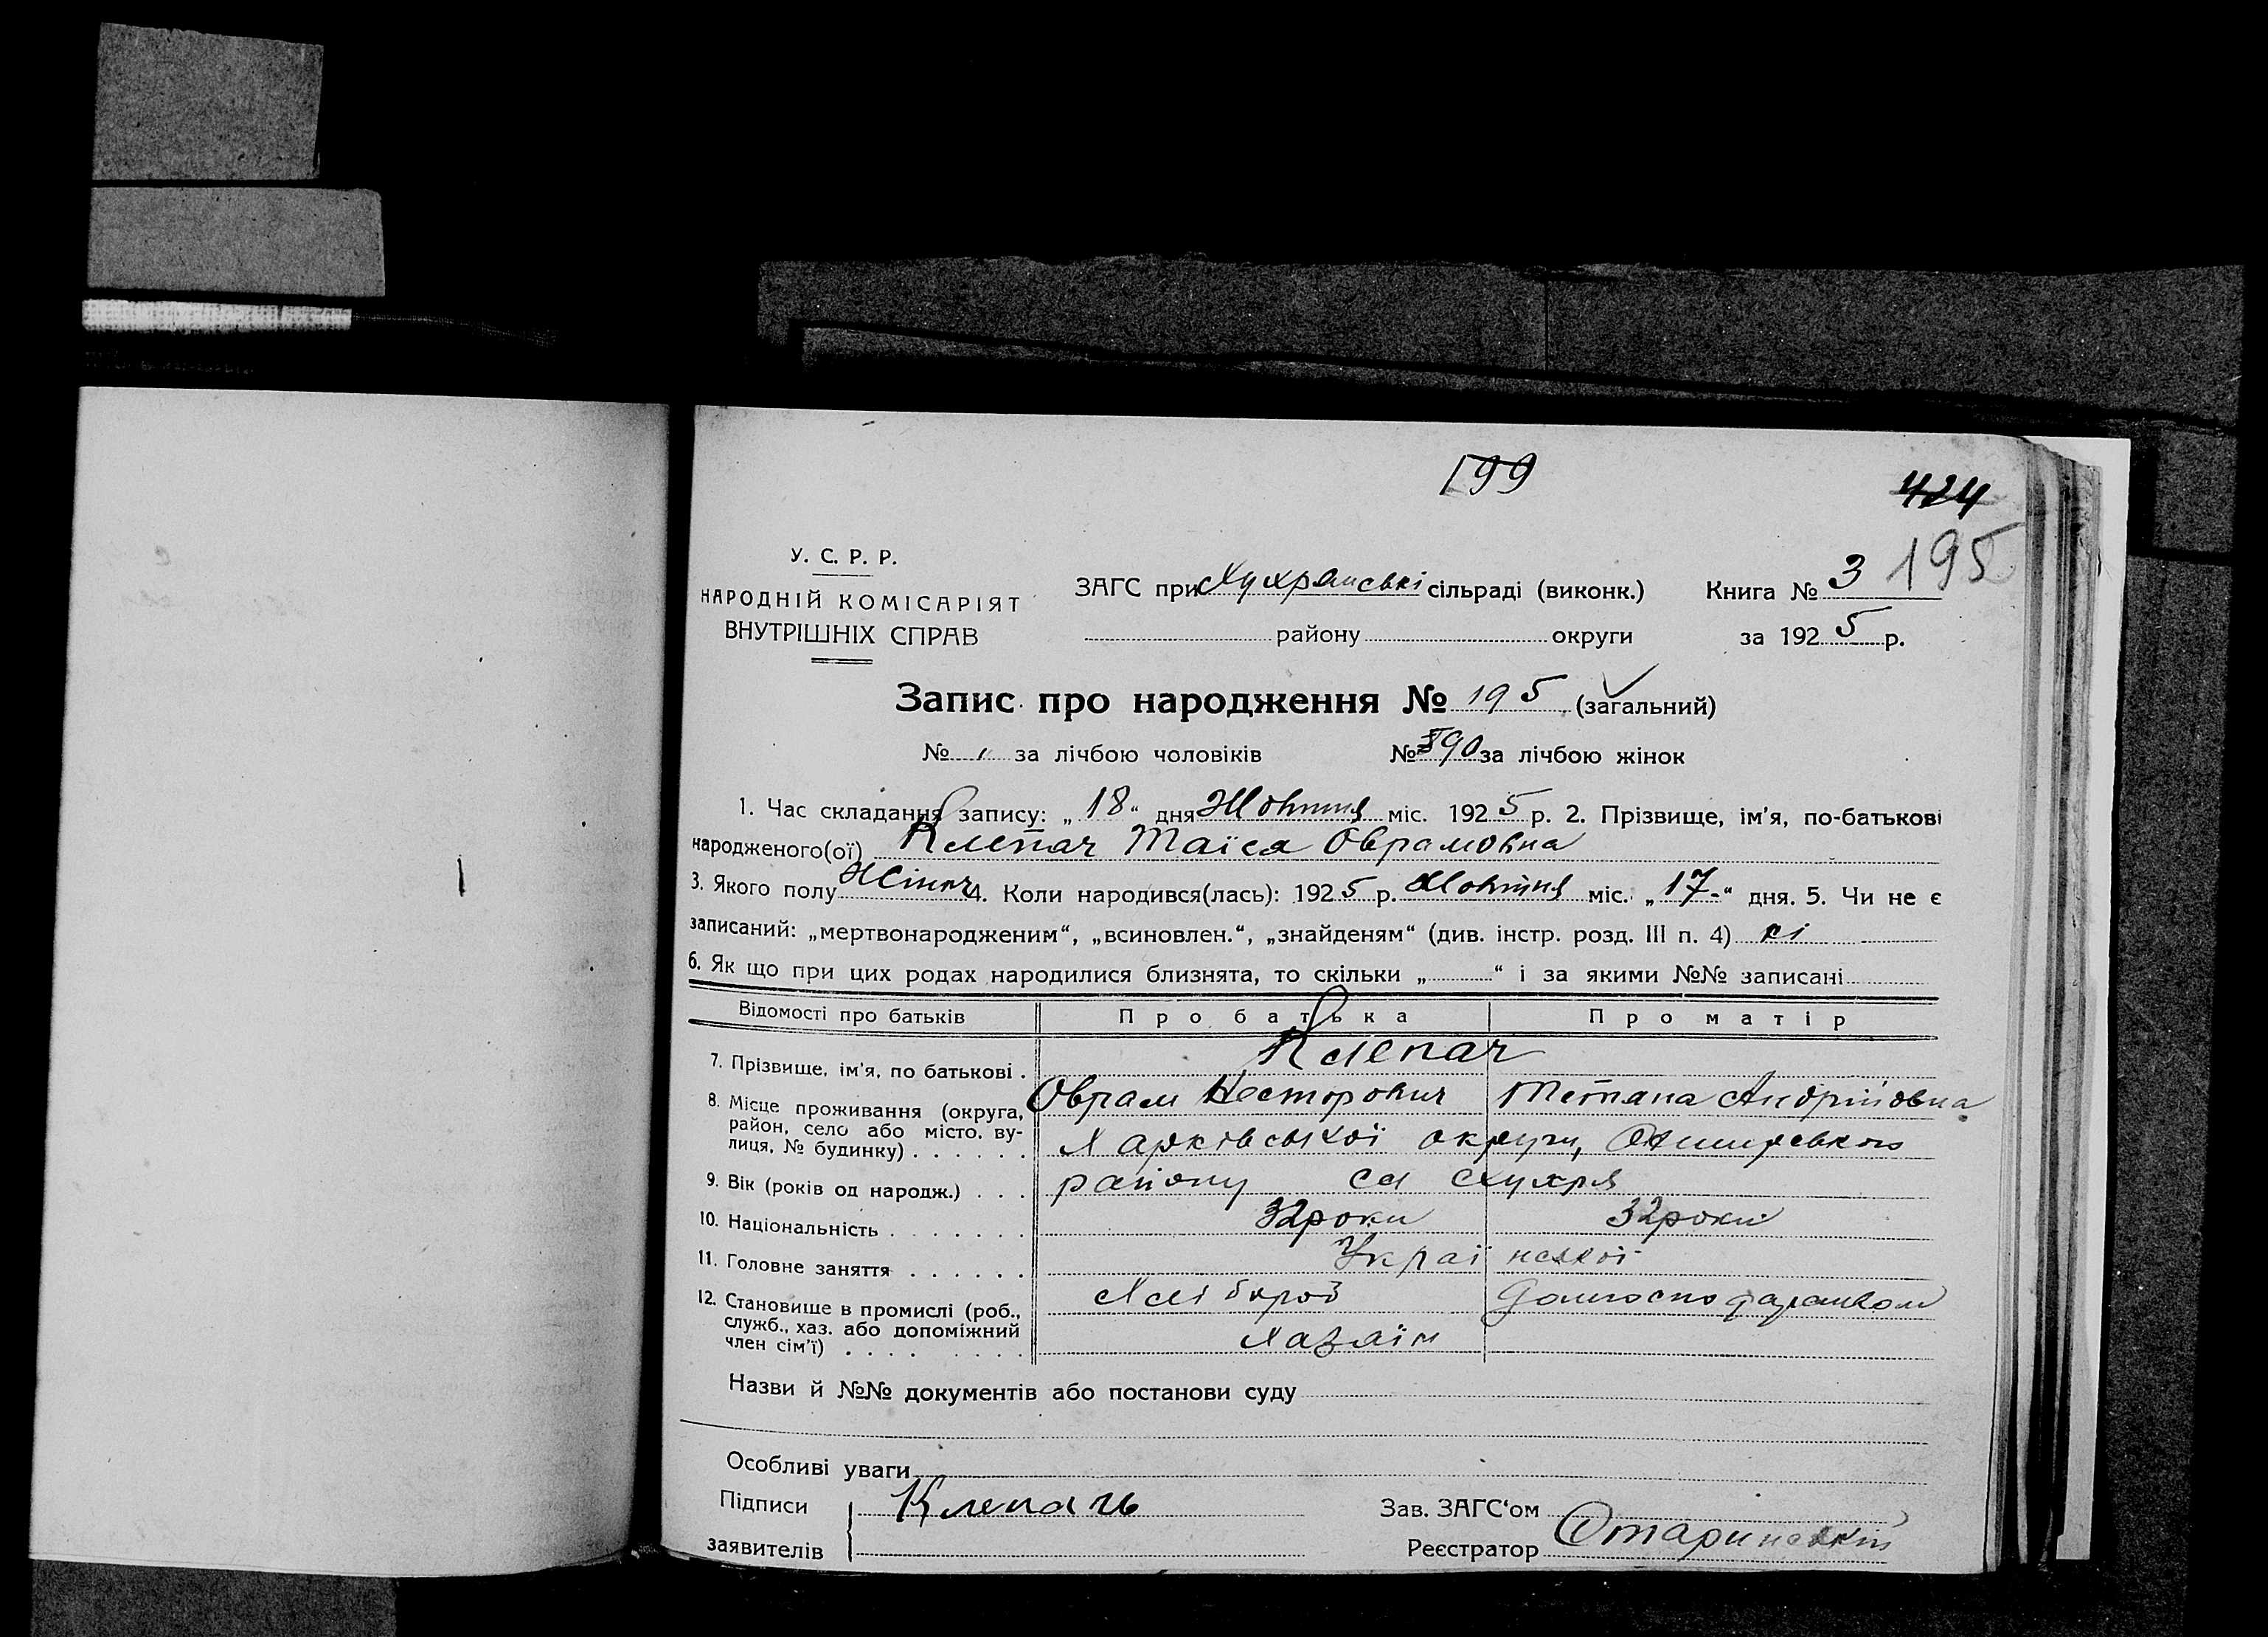 199
424
195
У. С. Р. Р.
НАРОДНІЙ КОМІСАРІЯТ
ВНУТРІШНІХ СПРАВ
ЗАГС при Хухранські сільраді (виконк.) Книга № 3
району округи за 1925 р.
Запис про народження № 195 (загальний)
№ " за лічбою чоловіків № 90 за лічбою жінок
1. Час складання запису: „18“ дня Жовтня міс. 1925 р. 2. Прізвище, ім'я, по-батькові
народженого(ої) Клепач Таїса Оврамовна
3. Якого полу Жіноч 4. Коли народився(лась): 1925 р. Жовтня міс. „17-“ дня. 5. Чи не є
записаний: „мертвонародженим“, „всиновлен.“, „знайденям“ (див. інстр. розд. III п. 4) ні
6. Як що при цих родах народилися близнята, то скільки „ “ і за якими №№ записані
Відомості про батьків Про батька Про матір
7. Прізвище, ім'я, по батькові . Клепач
Оврам Несторович Тетяна Андрійовна
8. Місце проживання (округа, район, село або місто, ву-
лиця, № будинку) . . . . . . Харківської округи, Охтирського
району с. Хухря
9. Вік (років од народж.) . . . 32 роки 32 роки
10. Національність . . . . . . . Української
11. Головне заняття . . . . . . Хлібороб
12. Становище в промислі (роб.,
служб., хаз. або допоміжний
член сім'ї) . . . . . . . . . Хазяїн
Назви й №№ документів або постанови суду
Особливі уваги
Підписи Клепачь Зав. ЗАГС'ом
заявителів Реєстратор Старинский